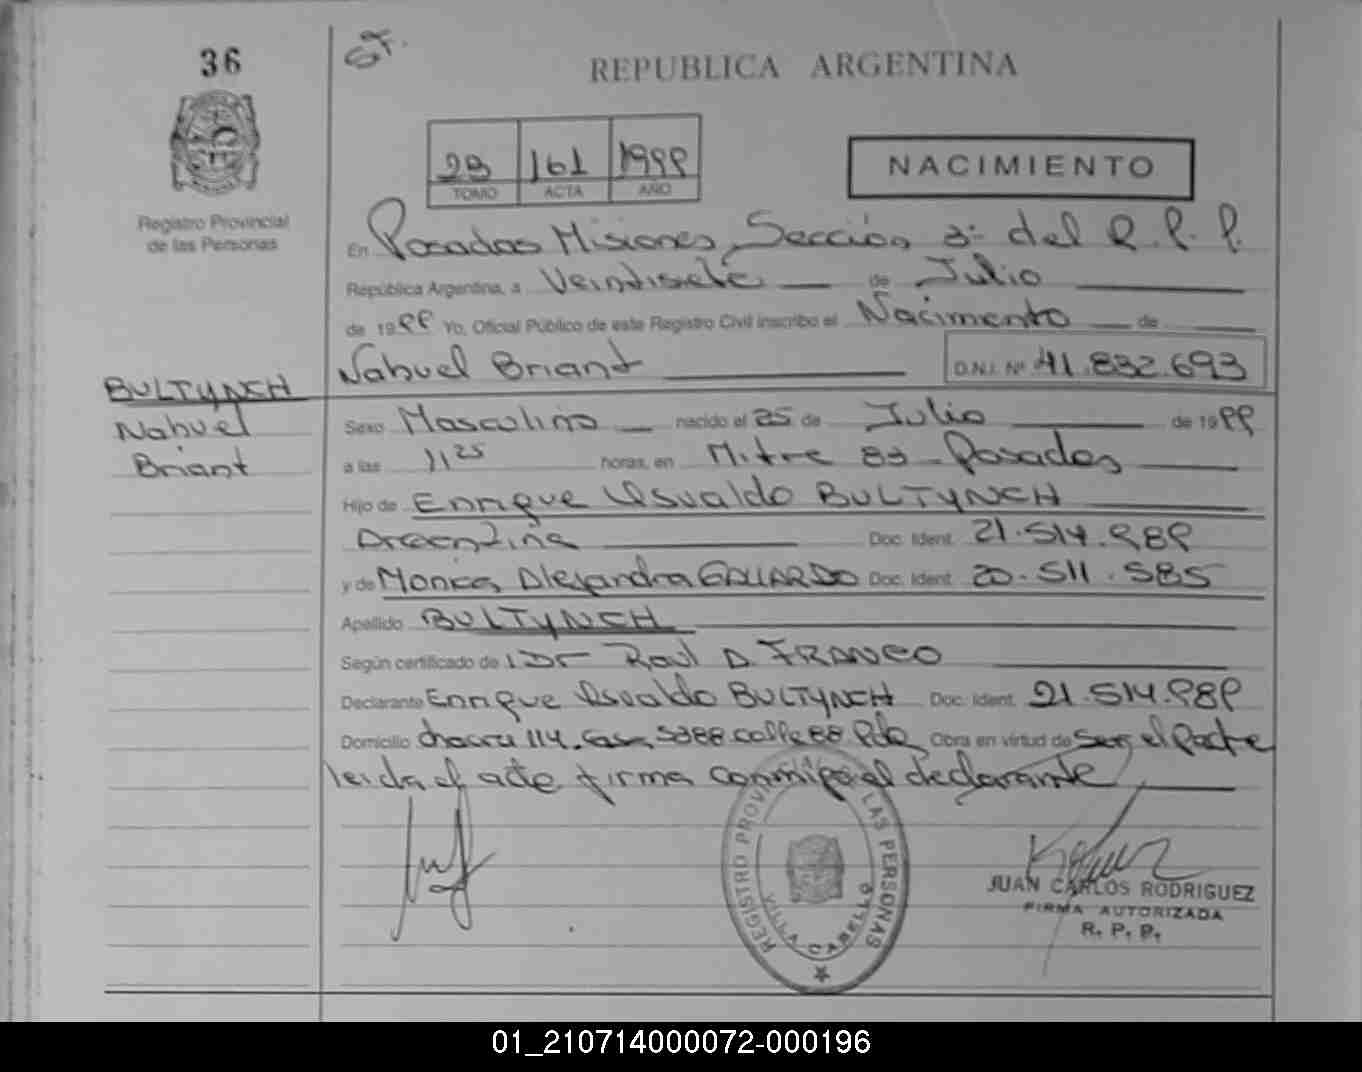 36
REPUBLICA ARGENTINA
161 1999
TOMO ACTA AÑO
NACIMIENTO
Registro Provincial
de las Personas
En Posadas Misiones, Sección 3ª del R.P.P.
República Argentina, a Veintisiete de Julio
de 1999 Yo, Oficial Público de este Registro Civil inscribo el Nacimiento de
Nahuel Briant D.N.I. Nº 41.832.693
BULTYNCH
Nahuel
Briant
Sexo Masculino nacido el 25 de Julio de 1999
a las 11 25 horas, en Mitre Posadas
Hijo de Enrique Osvaldo BULTYNCH
Argentina Doc. Ident. 21.514.989
y de Monica Alejandra GALLARDO Doc. Ident. 20.511.585
Apellido BULTYNCH
Según certificado de Dr Raul A. FRANCO
Declarante Enrique Osvaldo BULTYNCH Doc. Ident. 21.514.989
Domicilio chacra 114. Casa calle 88 Pdas Obra en virtud de Ser el Padre
leida el acta firma conmigo el declarante
REGISTRO PROVINCIAL LAS PERSONAS
VILLA CABELLO
JUAN CARLOS RODRIGUEZ
FIRMA AUTORIZADA
R. P. P.
01_210714000072-000196